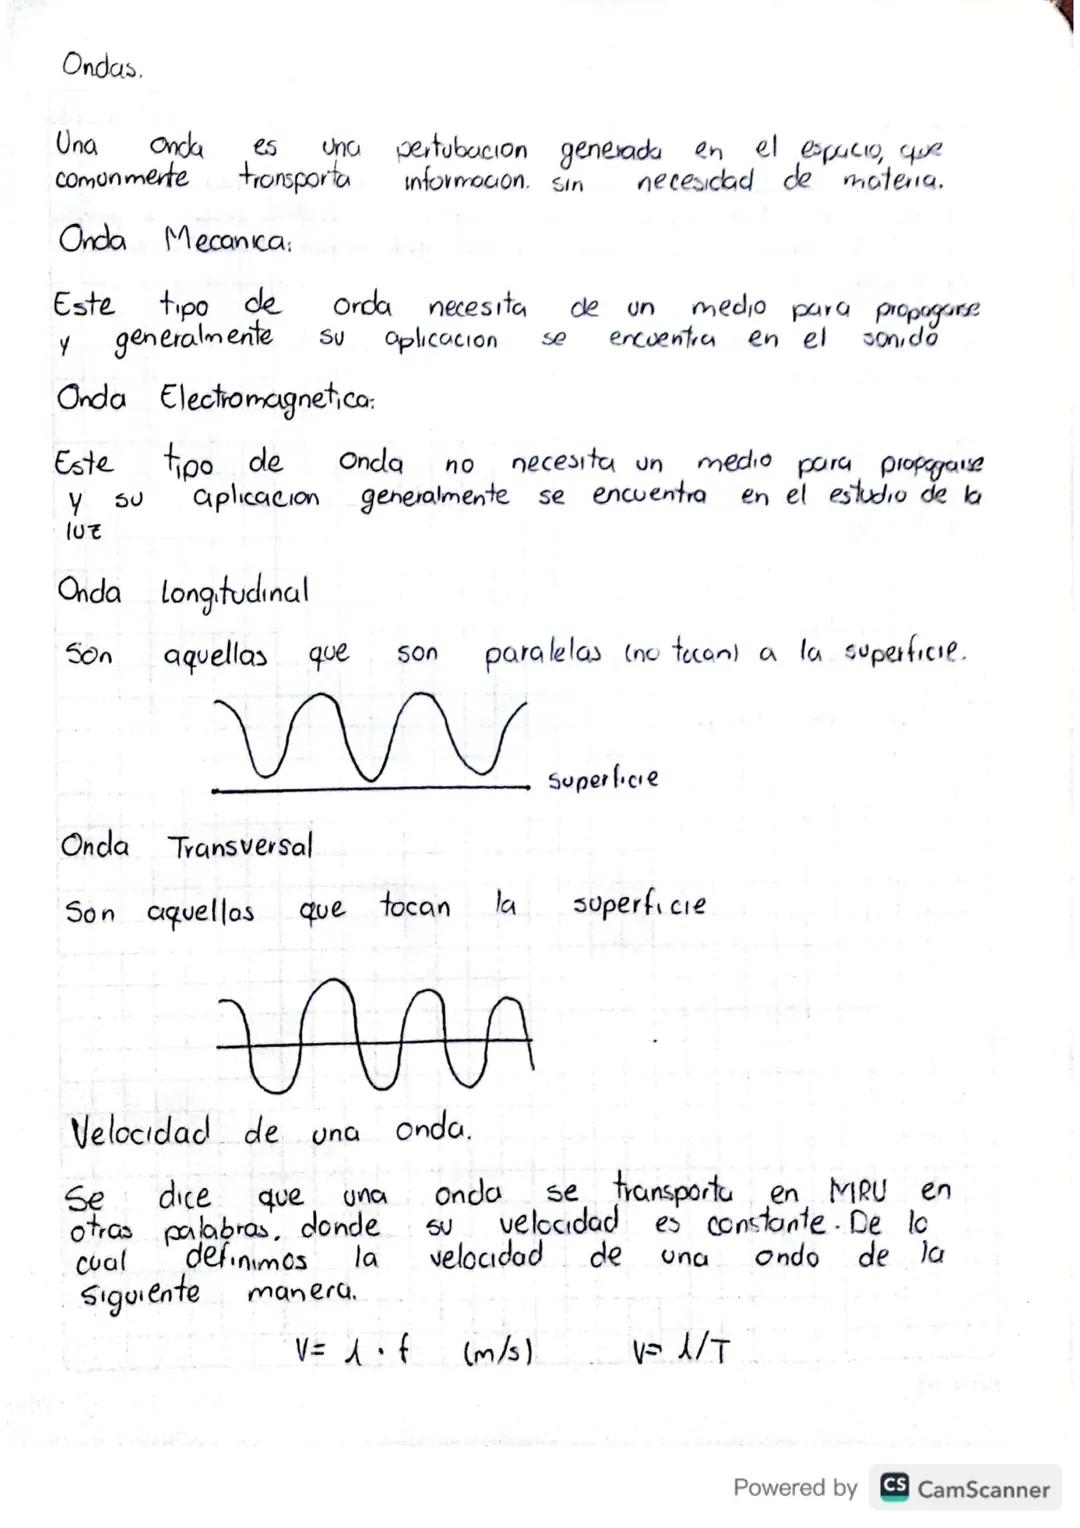 Ondas.
Una onda es una pertubacion generada en el espacio, que
comunmente transporta informacion. sin necesidad de materia.
Onda Mecanica:
Este tipo de onda necesita de un medio para propagarse
y generalmente su aplicacion se encuentra en el sonido
Onda Electromagnetica:
Este tipo de Onda no necesita un medio para propagarse
y su aplicacion generalmente se encuentra en el estudio de la
luz
Onda Longitudinal
Son aquellas que son paralelas (no tocan) a la superficie.
Superficie
Onda Transversal
Son aquellas que tocan la superficie
Velocidad de una onda.
Se dice que una onda se transporta en MRU en
otras palabras, donde su velocidad es constante. De lo
cual definimos la velocidad de una onda de la
siguiente manera.
V= λ · f (m/s) V= λ/T
Powered by CS CamScanner